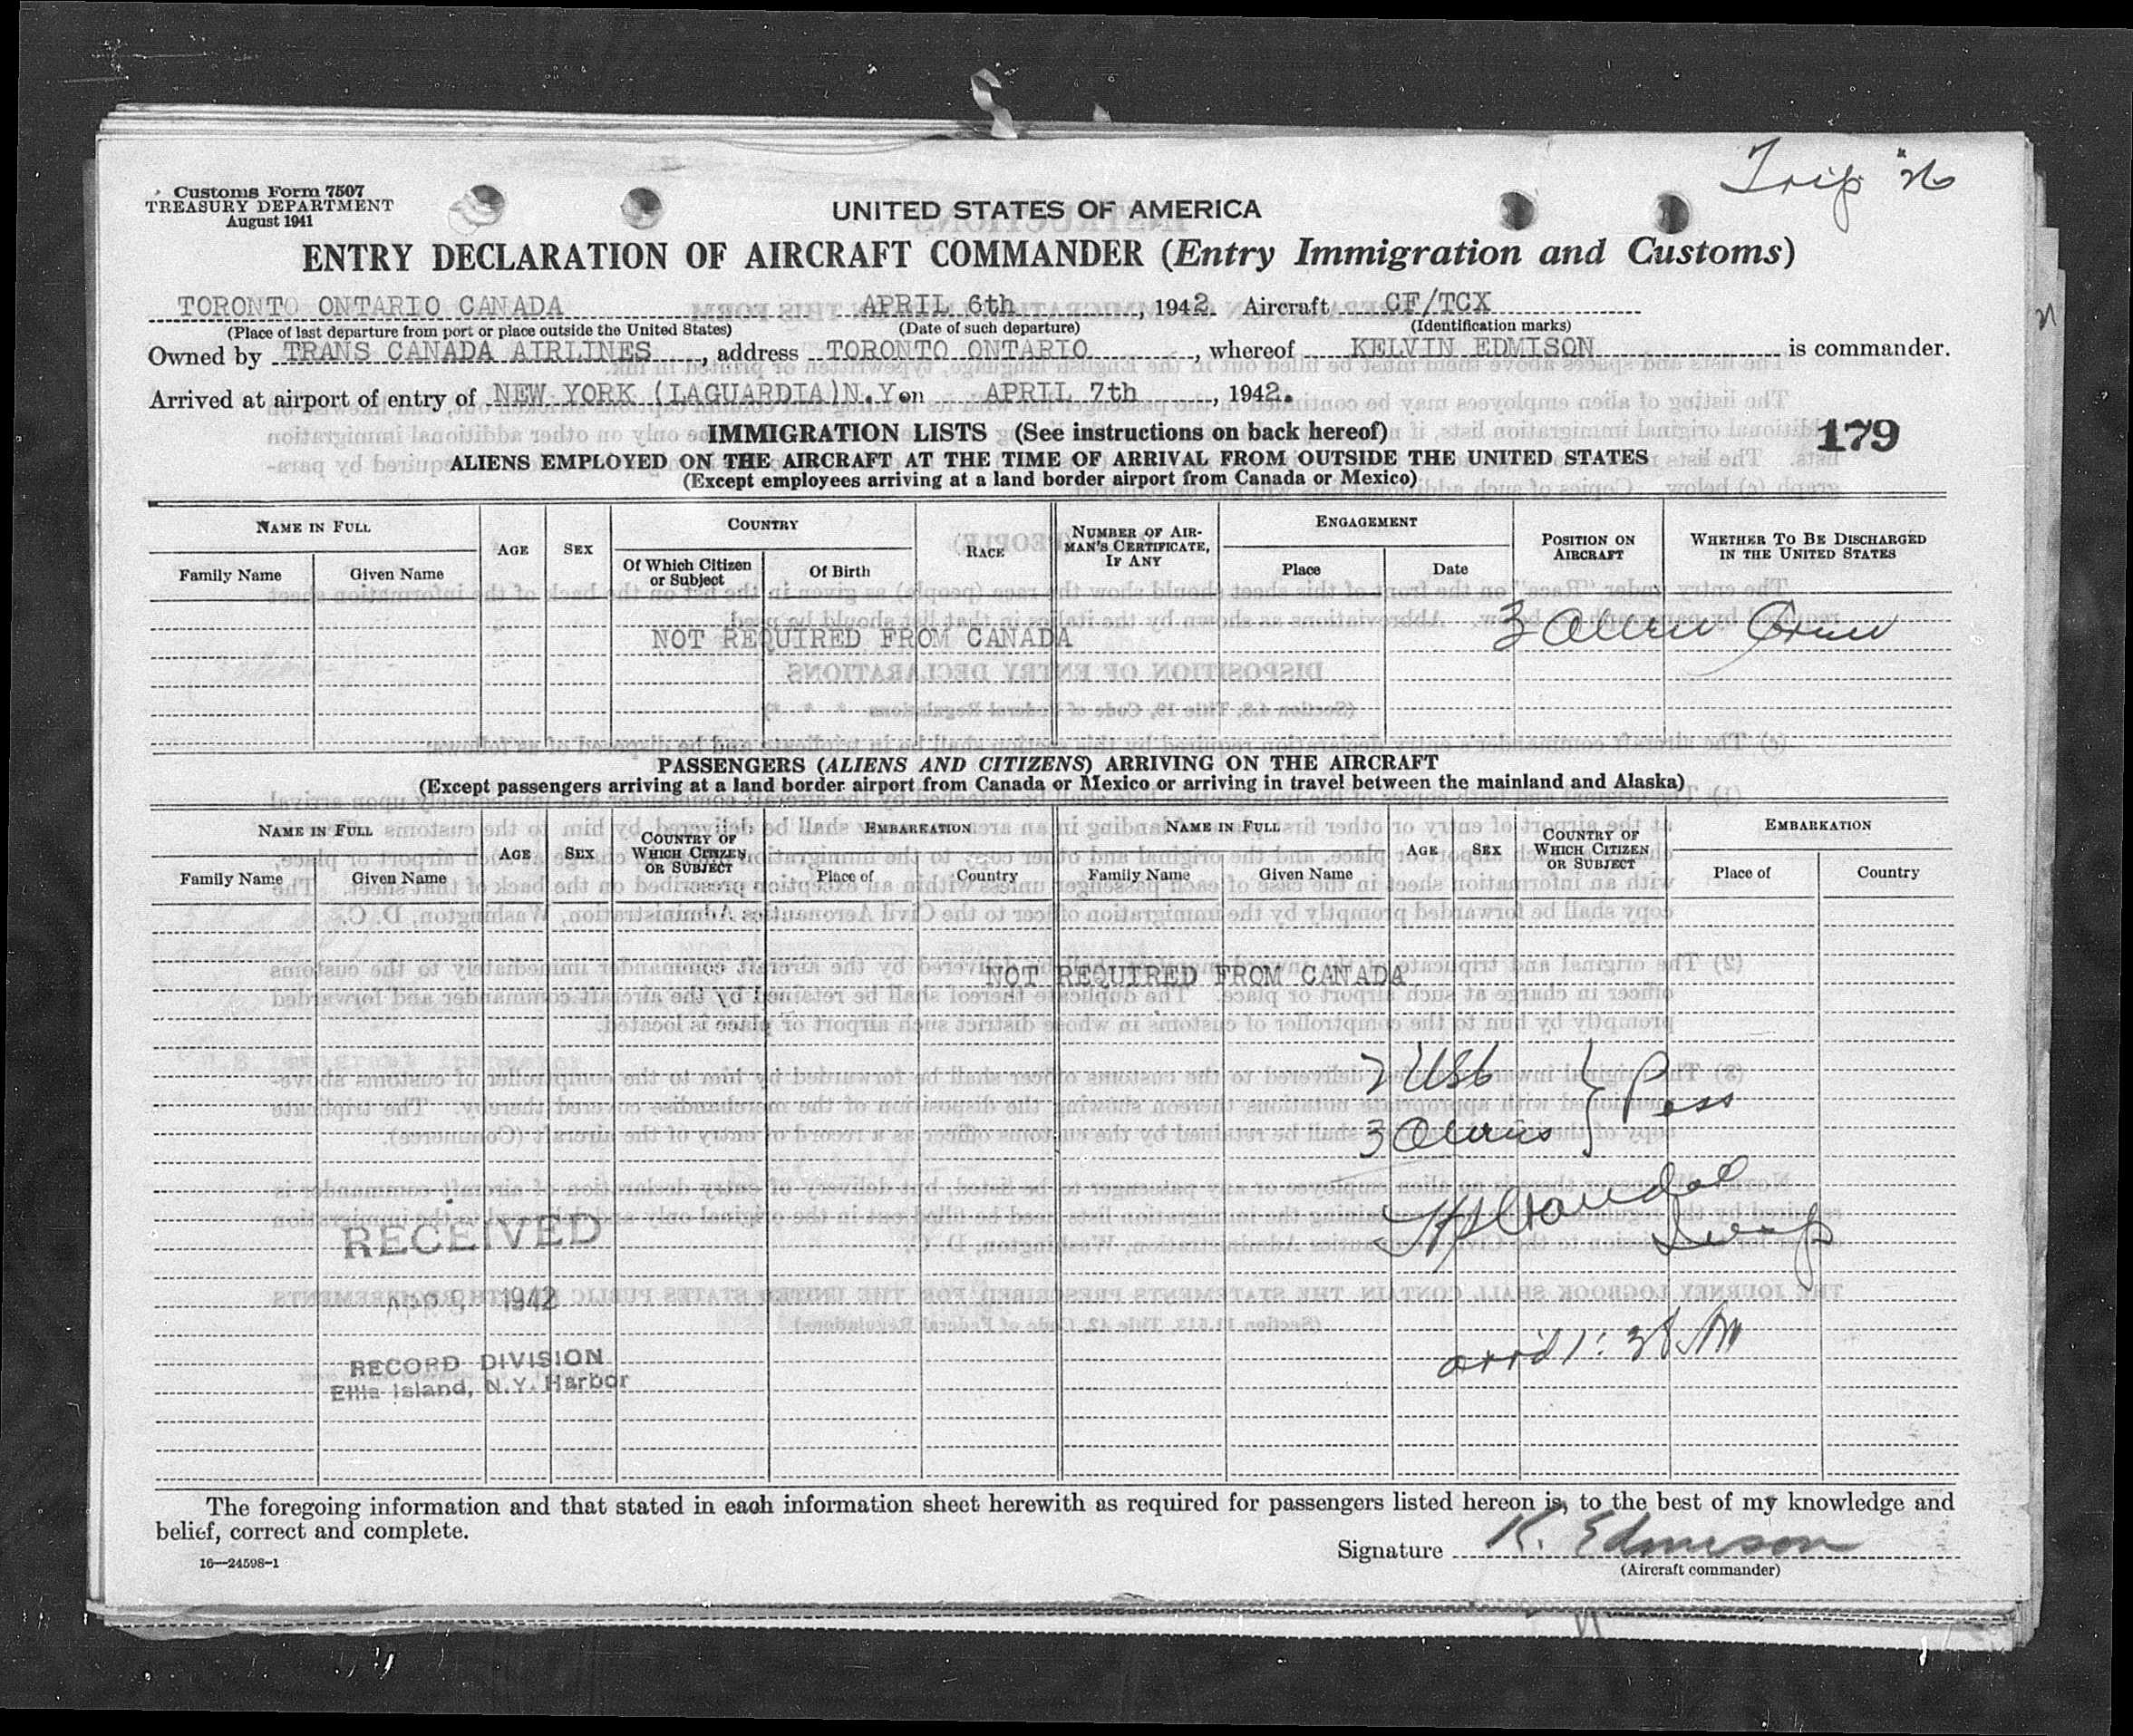 Trip #
Customs Form 7507
TREASURY DEPARTMENT
August 1941
UNITED STATES OF AMERICA
ENTRY DECLARATION OF AIRCRAFT COMMANDER (Entry Immigration and Customs)
TORONTO ONTARIO CANADA APRIL 6th, 1942. Aircraft CF/TCX
(Place of last departure from port or place outside the United States) (Date of such departure) (Identification marks)
Owned by TRANS CANADA AIRLINES, address TORONTO ONTARIO, whereof KELVIN EDMISON is commander.
Arrived at airport of entry of NEW YORK (LAGUARDIA)N.Y. on APRIL 7th, 1942.
IMMIGRATION LISTS (See instructions on back hereof)
179
ALIENS EMPLOYED ON THE AIRCRAFT AT THE TIME OF ARRIVAL FROM OUTSIDE THE UNITED STATES
(Except employees arriving at a land border airport from Canada or Mexico)
NAME IN FULL AGE SEX COUNTRY RACE NUMBER OF AIRMAN'S CERTIFICATE, IF ANY ENGAGEMENT POSITION ON AIRCRAFT WHETHER TO BE DISCHARGED IN THE UNITED STATES
Family Name Given Name Of Which Citizen or Subject Of Birth Place Date
3 Alien Crew
NOT REQUIRED FROM CANADA
PASSENGERS (ALIENS AND CITIZENS) ARRIVING ON THE AIRCRAFT
(Except passengers arriving at a land border airport from Canada or Mexico or arriving in travel between the mainland and Alaska)
NAME IN FULL AGE SEX COUNTRY OF WHICH CITIZEN OR SUBJECT EMBARKATION NAME IN FULL AGE SEX COUNTRY OF WHICH CITIZEN OR SUBJECT EMBARKATION
Family Name Given Name Place of Country Family Name Given Name Place of Country
NOT REQUIRED FROM CANADA
2 USC } Pass
3 Aliens
Insp
RECEIVED
1942
arr'd 1:38 AM
RECORD DIVISION
Ellis Island, N.Y. Harbor
The foregoing information and that stated in each information sheet herewith as required for passengers listed hereon is, to the best of my knowledge and
belief, correct and complete.
Signature K. Edmison
(Aircraft commander)
16—24598-1